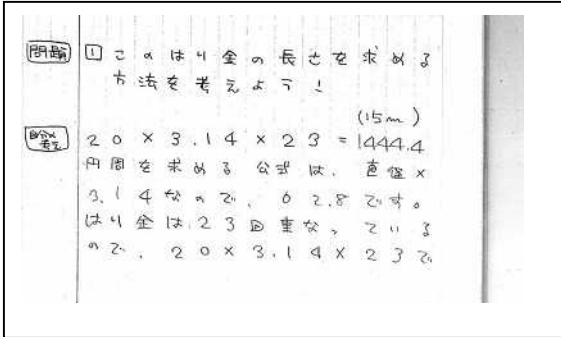 問題 1 このはり金の長さを求める
方法を考えよう！
(15m)
自分の考え 20×3.14×23=1444.4
円周を求める公式は、直径×
3.14なので、62.8です。
はり金は、23回重なっている
ので、20×3.14×23で